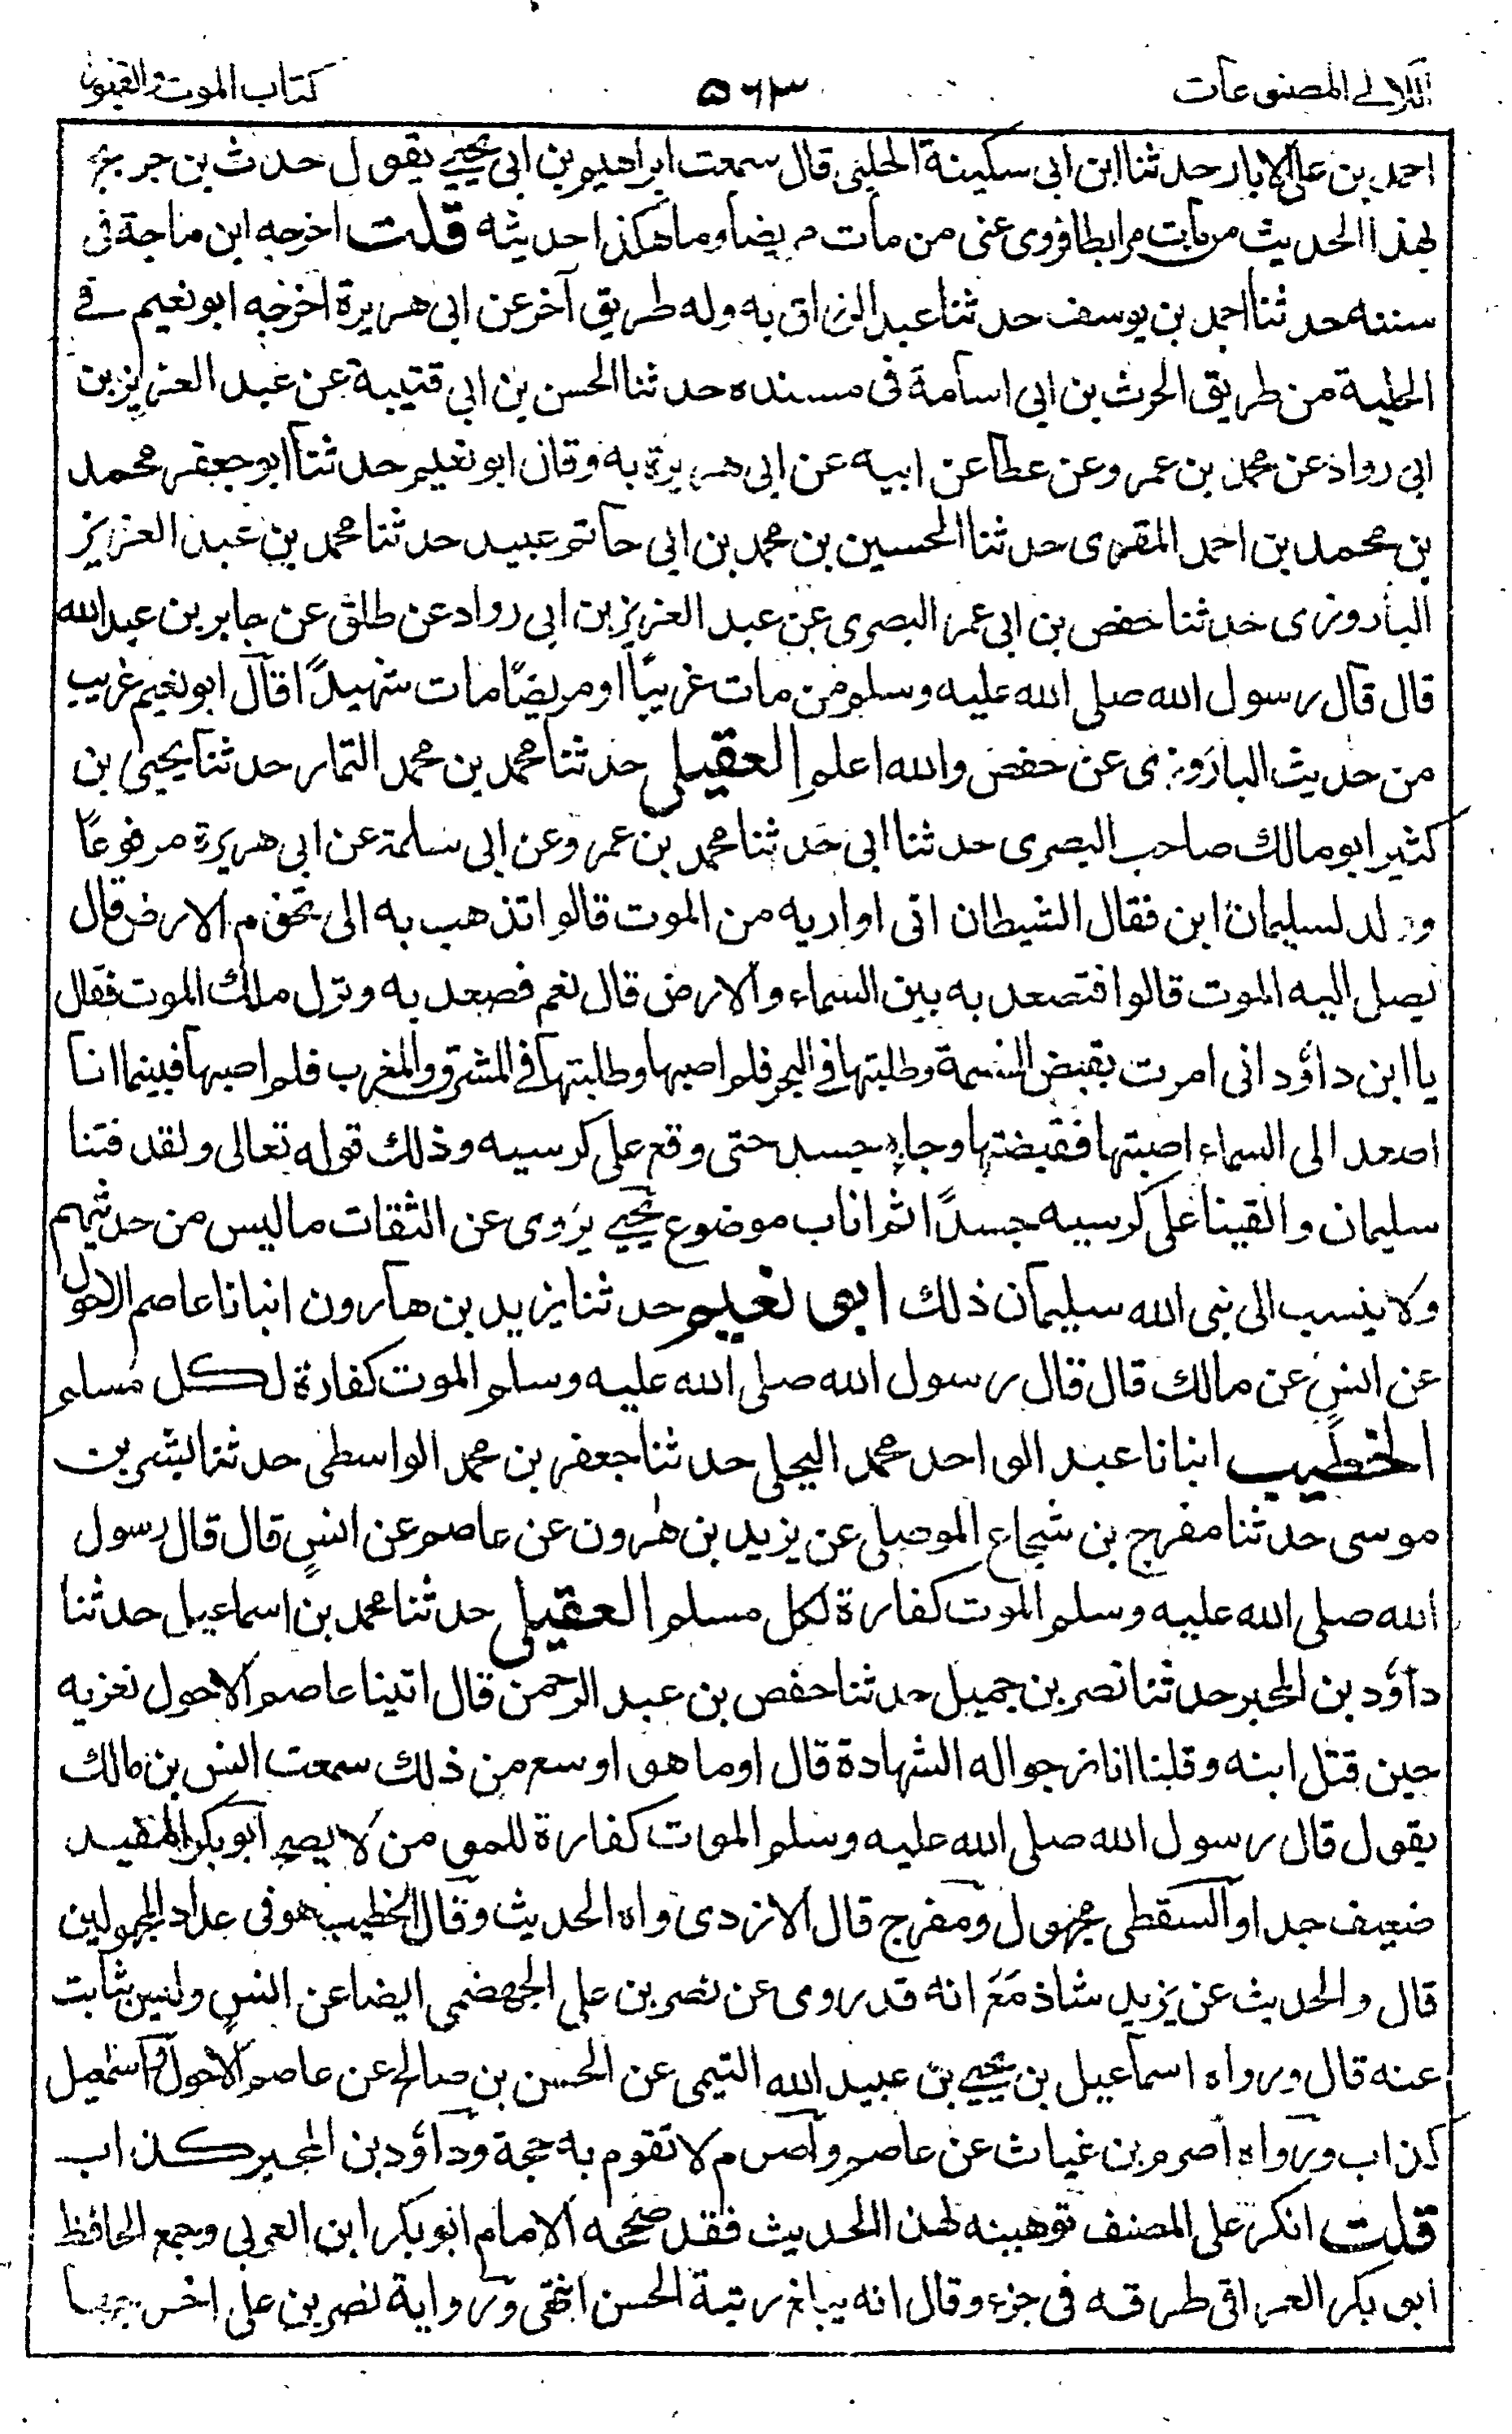 اللالي المصنوعات
٥٦٣
كتاب الموت والقبور
احمد بن على الابار حدثنا ابن ابى سكينة الحلبى قال سمعت ابراهيم بن ابى يحيى يقول حدث بن جريج
بهذا الحديث من مات مرابطا فروى عنى من مات مريضا وما هكذا حديثه قلت اخرجه ابن ماجة فى
سننه حدثنا احمد بن يوسف حدثنا عبد الرزاق به وله طريق آخر عن ابى هريرة اخرجه ابو نعيم في
الحلية من طريق الحرث بن ابى اسامة فى مسنده حدثنا الحسن بن ابى قتيبة عن عبد العزيز بن
ابى رواد عن محمد بن عمر وعن عطا عن ابيه عن ابى هريرة به وقال ابو نعيم حدثنا ابو جعفر محمد
بن محمد بن احمد المقرى حدثنا الحسين بن محمد بن ابى حاتم عبيد حدثنا محمد بن عبد العزيز
الباروزى حدثنا حفص بن ابى عمر البصرى عن عبد العزيز بن ابى رواد عن طلق عن جابر بن عبد الله
قال قال رسول الله صلى الله عليه وسلم من مات غريبًا او مريضًا مات شهيدًا قال ابو نعيم غريب
من حديث الباروزى عن حفص والله اعلم العقيلى حدثنا محمد بن محمد التمار حدثنا يحيى بن
كثير ابو مالك صاحب البصرى حدثنا ابى حدثنا محمد بن عمر وعن ابى سلمة عن ابى هريرة مرفوعًا
ولد لسليمان ابن فقال الشيطان انى اواريه من الموت قالوا تذهب به الى تخوم الارض قال
يصل اليه الموت قالوا فتصعد به بين السماء والارض قال نعم فصعد به ونزل ملك الموت فقال
يا ابن داؤد انى امرت بقبض النسمة وطلبتها فى البحر فلم اصبها وطلبتها فى المشرق والمغرب فلم اصبها فبينما انا
اصعد الى السماء اصبتها فقبضتها وجاء جسد حتى وقع على كرسيه وذلك قوله تعالى ولقد فتنا
سليمان والقينا على كرسيه جسدًا ثم اناب موضوع يحيى يروى عن الثقات ما ليس من حديثهم
ولا ينسب الى نبى الله سليمان ذلك ابو نعيم حدثنا يزيد بن هارون انبانا عاصم الاحول
عن انسٍ عن مالك قال قال رسول الله صلى الله عليه وسلم الموت كفارة لكل مسلم
الخطيب انبانا عبد الواحد محمد البجلى حدثنا جعفر بن محمد الواسطى حدثنا بشر بن
موسى حدثنا مفرج بن شجاع الموصلى عن يزيد بن هٰرون عن عاصم عن انسٍ قال قال رسول
الله صلى الله عليه وسلم الموت كفارة لكل مسلم العقيلى حدثنا محمد بن اسماعيل حدثنا
داؤد بن المحبر حدثنا نصر بن جميل حدثنا حفص بن عبد الرحمن قال اتينا عاصم الاحول نعزيه
حين قتل ابنه وقلنا انا نرجو اله الشهادة قال اوما هو اوسع من ذلك سمعت انس بن مالك
يقول قال رسول الله صلى الله عليه وسلم الموت كفارة للمومن لا يصح ابو بكر المفيد
ضعيف جدا والسقطى مجهول ومفرج قال الازدى واه الحديث وقال الخطيب هو فى عداد المجهولين
قال والحديث عن يزيد شاذ مع انه قد روى عن نصر بن على الجهضمى ايضا عن انسٍ وليس بثابت
عنه قال ورواه اسماعيل بن يحيى بن عبيد الله التيمى عن الحسن بن صالح عن عاصم الاحول واسمعيل
كذاب ورواه اصرم بن غياث عن عاصم واصرم لا تقوم به حجة وداؤد بن المحبر كذاب
قلت انكر على المصنف توهينه لهذا الحديث فقد صححه الامام ابو بكر ابن العربى وجمع الحافظ
ابو بكر العراقى طرقه فى جزء وقال انه يبلغ رتبة الحسن انتهى ورواية نصر بن على اخرجها